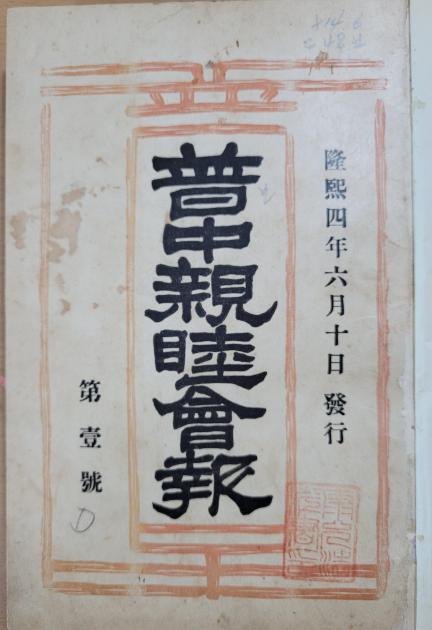 隆熙四年六月十日 發行
普中親睦會報
第壹號
D